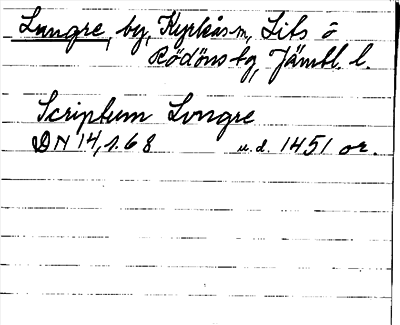 Lungre, by, Kyrkås sn, Lits o
Rödöns tg, Jämtl. l.
Scriptum Lvngre
DN 14, s. 68 u.d. 1451 or.